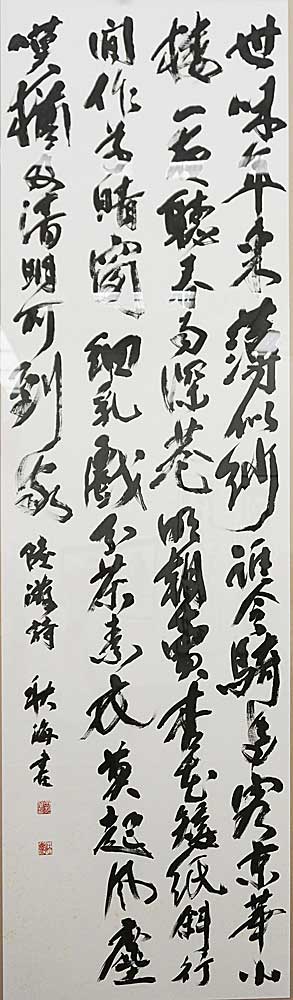 世味年來薄似紗誰令騎馬客京華小
樓一夜聽春雨深巷明朝賣杏花矮紙斜行
閒作草晴窗細乳戲分茶素衣莫起風塵
嘆猶及清明可到家 陸游詩 秋海書